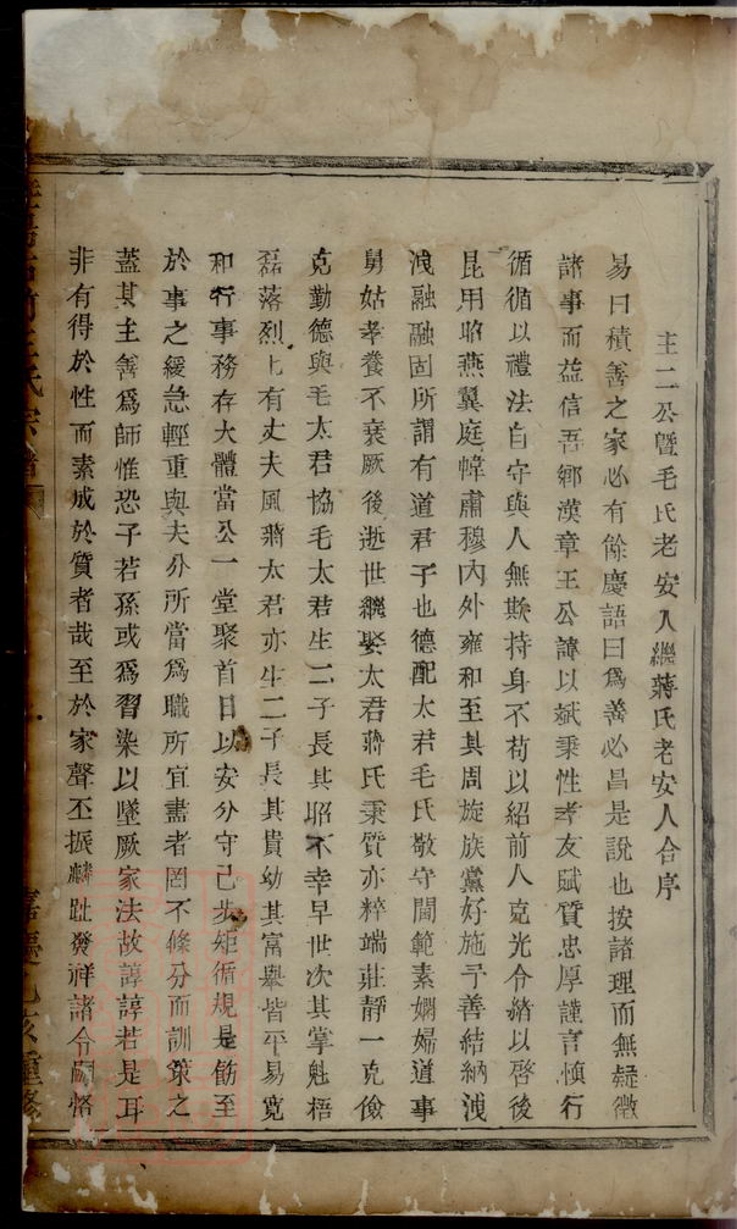 主二公曁毛氏老安人繼蔣氏老安人合序
易曰積善之家必有餘慶語曰爲善必昌是說也按諸理而無疑徵
諸事而益信吾鄉漢章王公諱以斌秉性孝友賦質忠厚謹言愼行
循循以禮法自守與人無欺持身不苟以紹前人克光令緒以啓後
昆用昭燕翼庭幃肅穆內外雍和至其周旋族黨好施予善結納洩
洩融融固所謂有道君子也德配太君毛氏敬守閫範素嫻婦道事
舅姑孝養不衰厥後逝世繼娶太君蔣氏秉質亦粹端莊靜一克儉
克勤德與毛太君協毛太君生二子長其昭不幸早世次其掌魁梧
磊落烈上有丈夫風蔣太君亦生二子長其貴幼其富舉皆平易寬
和行事務存大體當公一堂聚首日以安分守己步矩循規是飭至
於事之緩急輕重與夫分所當爲職所宜盡者罔不條分而訓策之
蓋其主善爲師惟恐子若孫或爲習染以墜厥家法故諄諄若是耳
非有得於性而素成於質者哉至於家聲丕振麟趾發祥諸令嗣恪
王氏宗譜
嘉慶乙亥重修